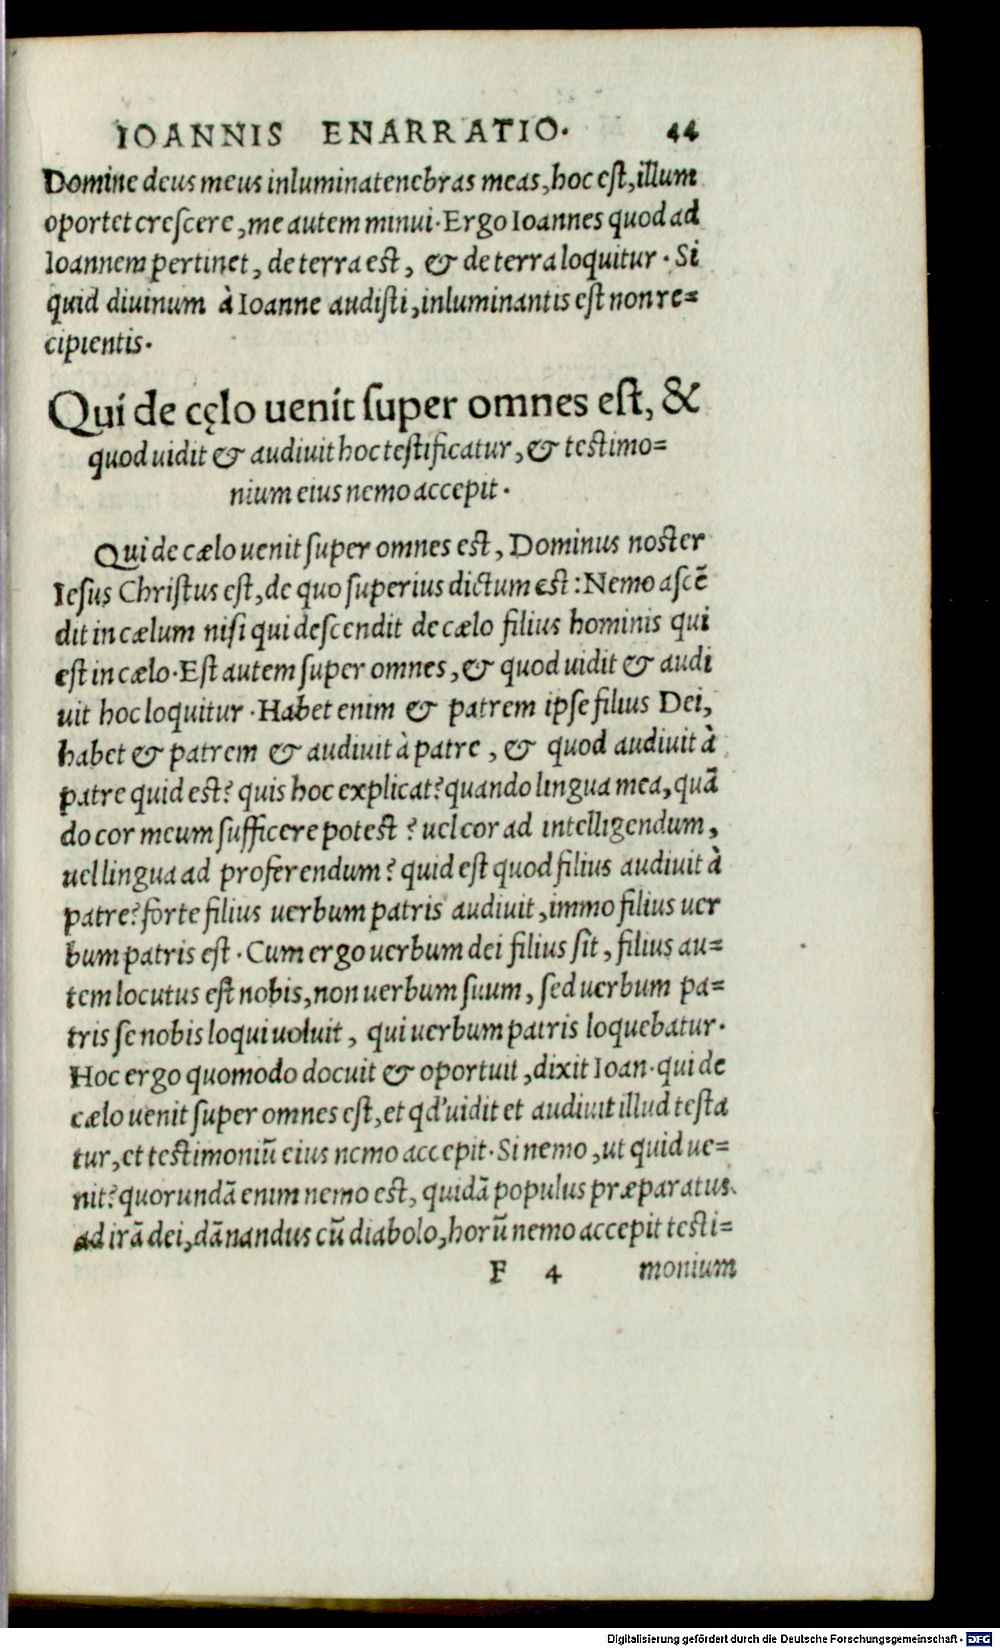 IOANNIS ENARRATIO. 44
Domine deus meus inlumina tenebras meas, hoc est, illum
oportet crescere, me autem minui. Ergo Ioannes quod ad
Ioannem pertinet, de terra est, & de terra loquitur. Si
quid diuinum à Ioanne audisti, inluminantis est non re=
cipientis.
Qui de cęlo uenit super omnes est, &
quod uidit & audiuit hoc testificatur, & testimo=
nium eius nemo accepit.
Qui de cælo uenit super omnes est, Dominus noster
Iesus Christus est, de quo superius dictum est: Nemo ascē
dit in cælum nisi qui descendit de cælo filius hominis qui
est in cælo. Est autem super omnes, & quod uidit & audi
uit hoc loquitur. Habet enim & patrem ipse filius Dei,
habet & patrem & audiuit à patre, & quod audiuit à
patre quid est? quis hoc explicat? quando lingua mea, quā
do cor meum sufficere potest? uel cor ad intelligendum,
uel lingua ad proferendum? quid est quod filius audiuit à
patre? forte filius uerbum patris audiuit, immo filius uer
bum patris est. Cum ergo uerbum dei filius sit, filius au=
tem locutus est nobis, non uerbum suum, sed uerbum pa=
tris se nobis loqui uoluit, qui uerbum patris loquebatur.
Hoc ergo quomodo docuit & oportuit, dixit Ioan. qui de
cælo uenit super omnes est, et qd' uidit et audiuit illud testa
tur, et testimoniū eius nemo accepit. Si nemo, ut quid ue=
nit? quorundā enim nemo est, quidā populus præparatus
ad irā dei, dānandus cū diabolo, horū nemo accepit testi=
F 4 monium
Digitalisierung gefördert durch die Deutsche Forschungsgemeinschaft - DFG